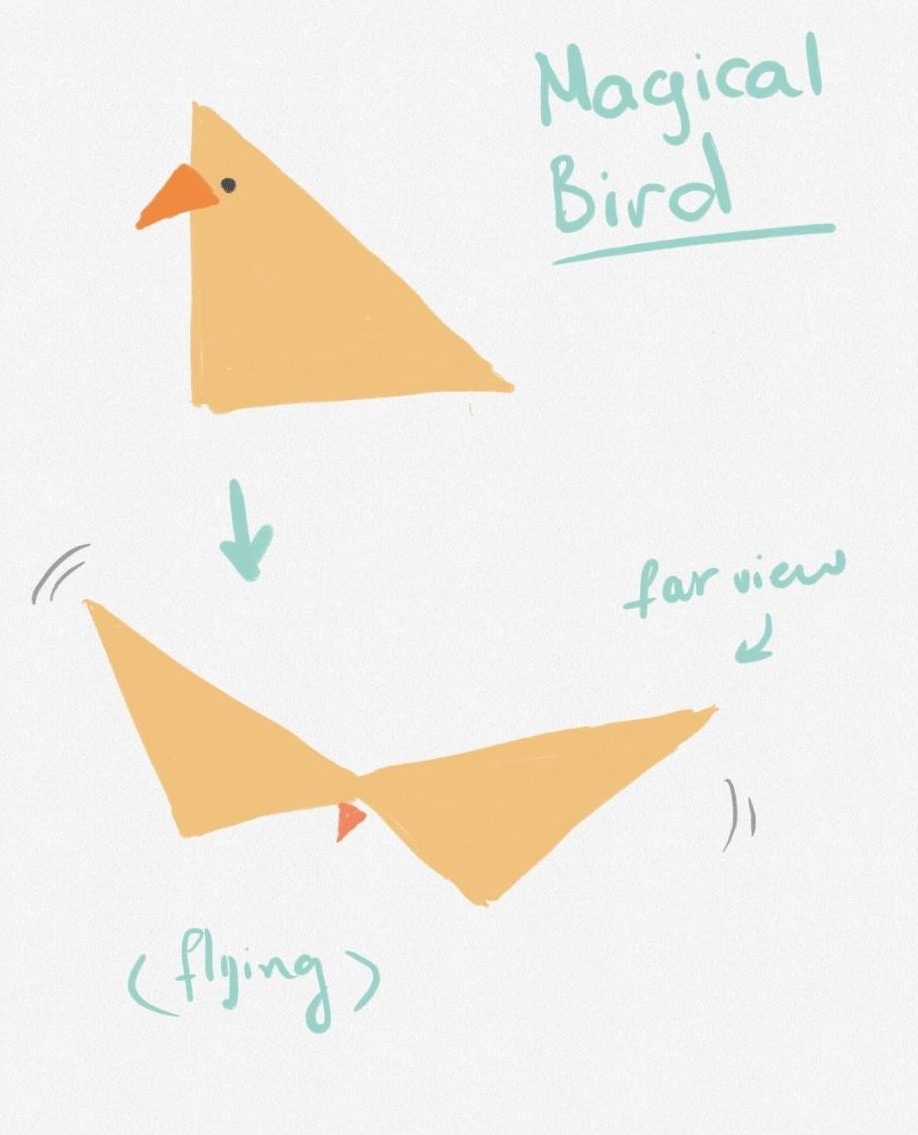 Magical
Bird
far view
(flying)